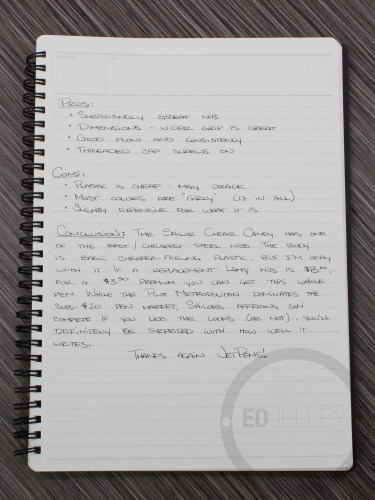 Pros:
• Surprisingly great nib
• Dimensions - wider grip is great
• Good flow and consistency
• Threaded cap screws on
Cons:
• Plastic is cheap - may crack
• Most colors are "girly" (17 in all)
• Slightly expensive for what it is
Conclusion: The Sailor Clear Candy has one
of the best / cheapest steel nibs. The body
is basic cheaper-feeling plastic, but I'm okay
with it. If a replacement Lamy nib is
for a premium you can get this whole
pen. While the Pilot Metropolitan dominates the
sub-$20 pen market, Sailors offering can
compete. If you like the looks (or not), you'll
definitely be surprised with how well it
writes.
Thanks again JetPens!
ED JELLEY